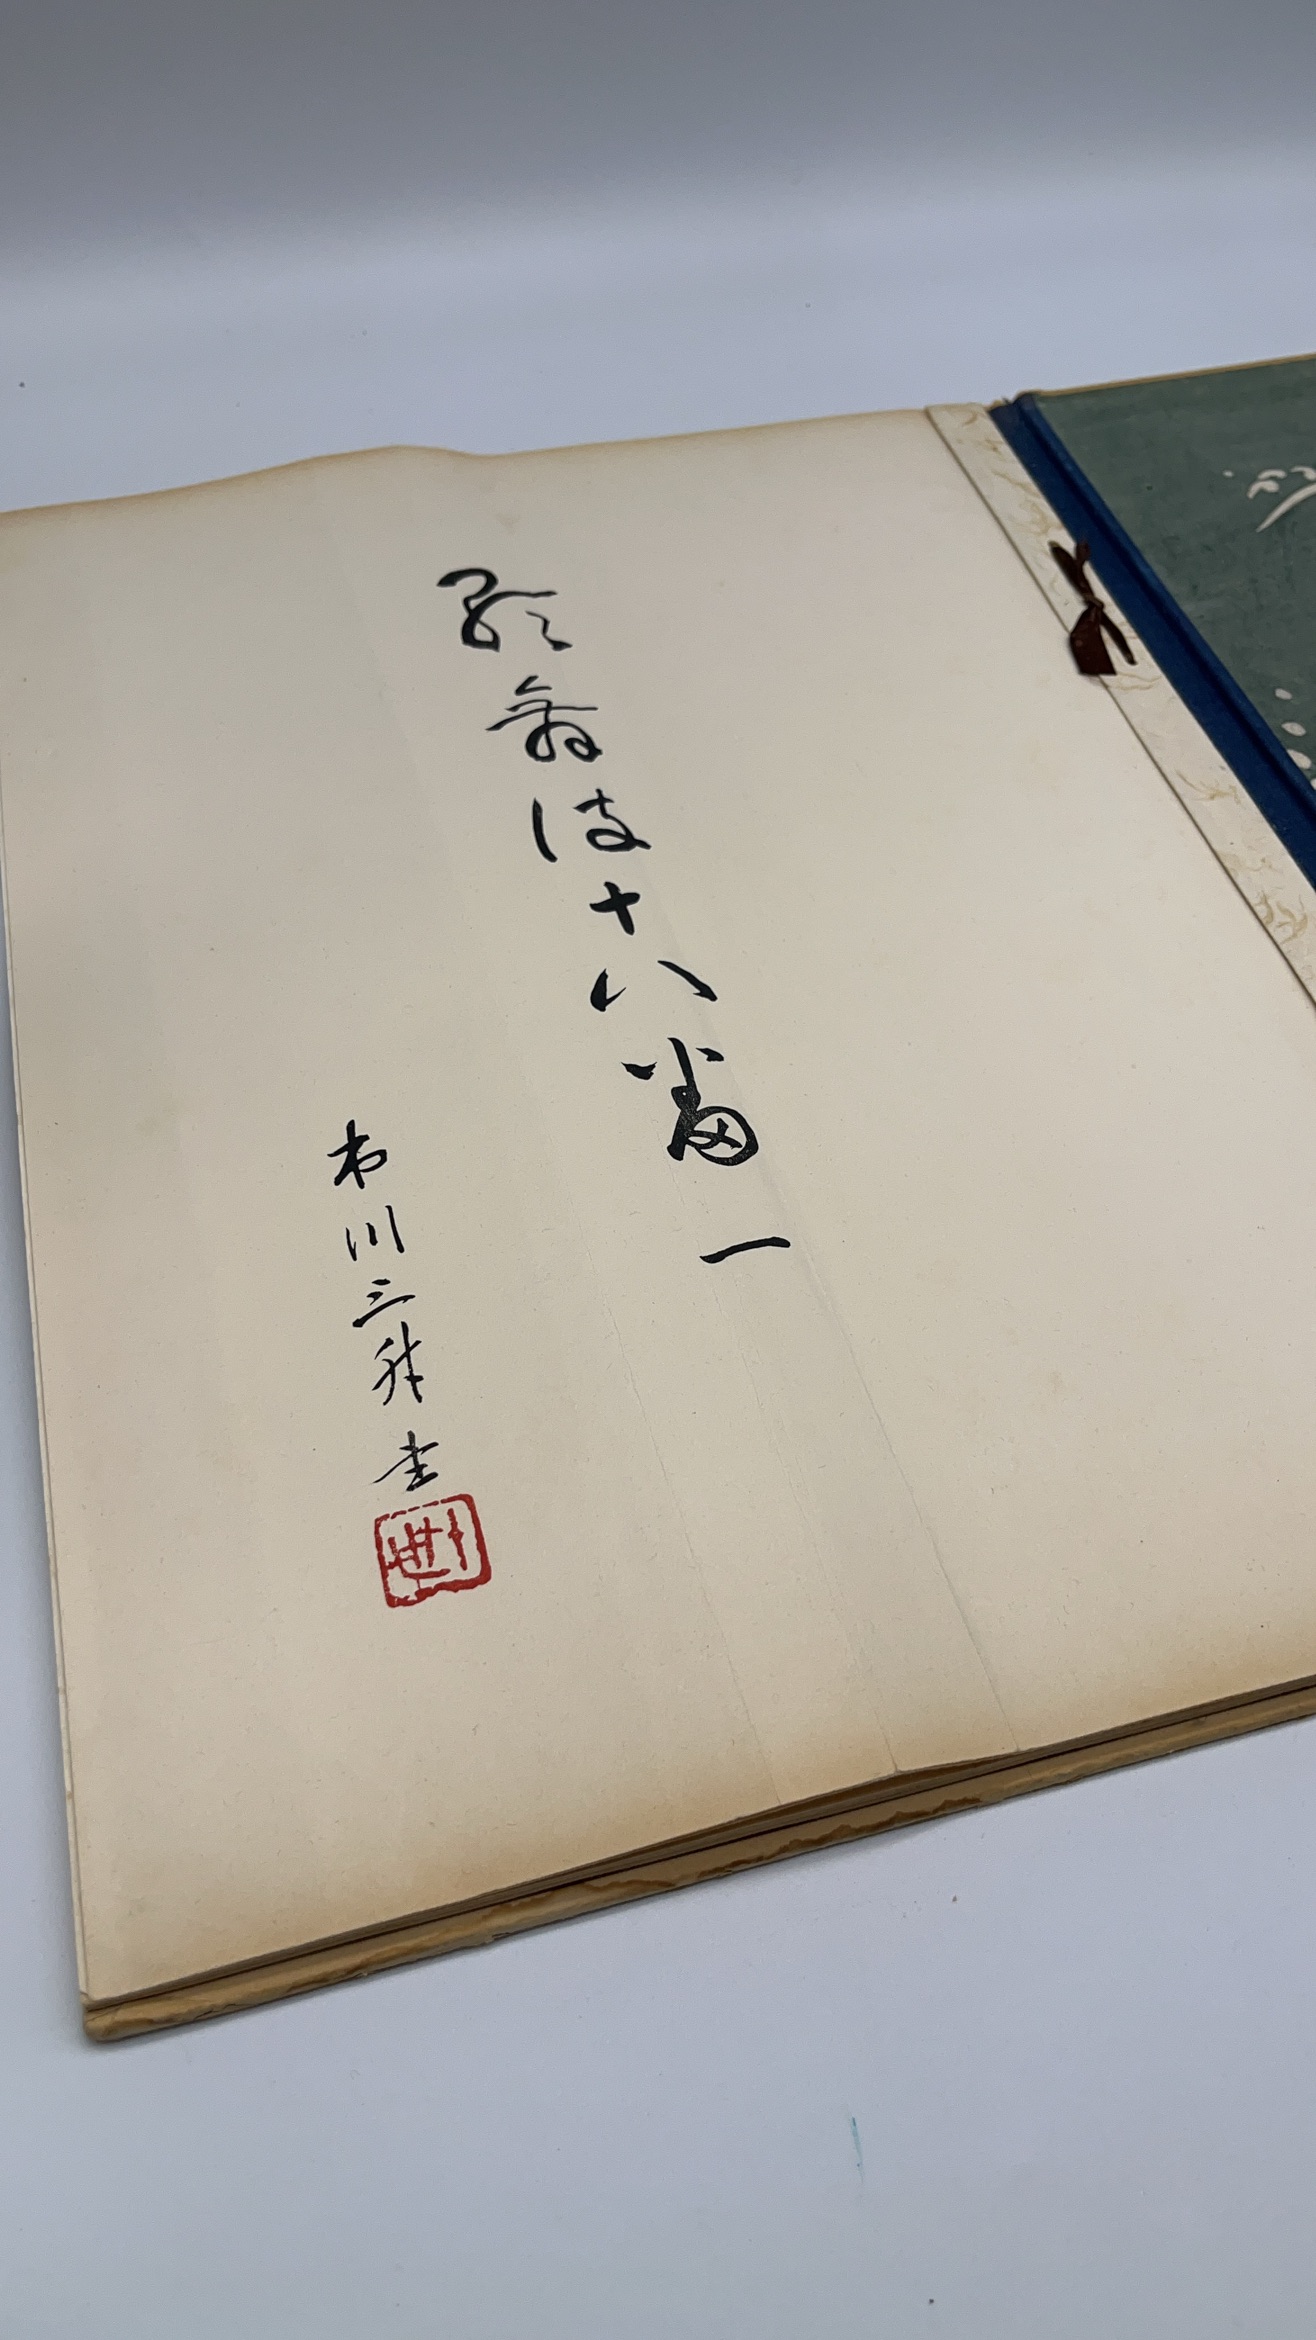 歌舞伎十八番 一
市川三升 書